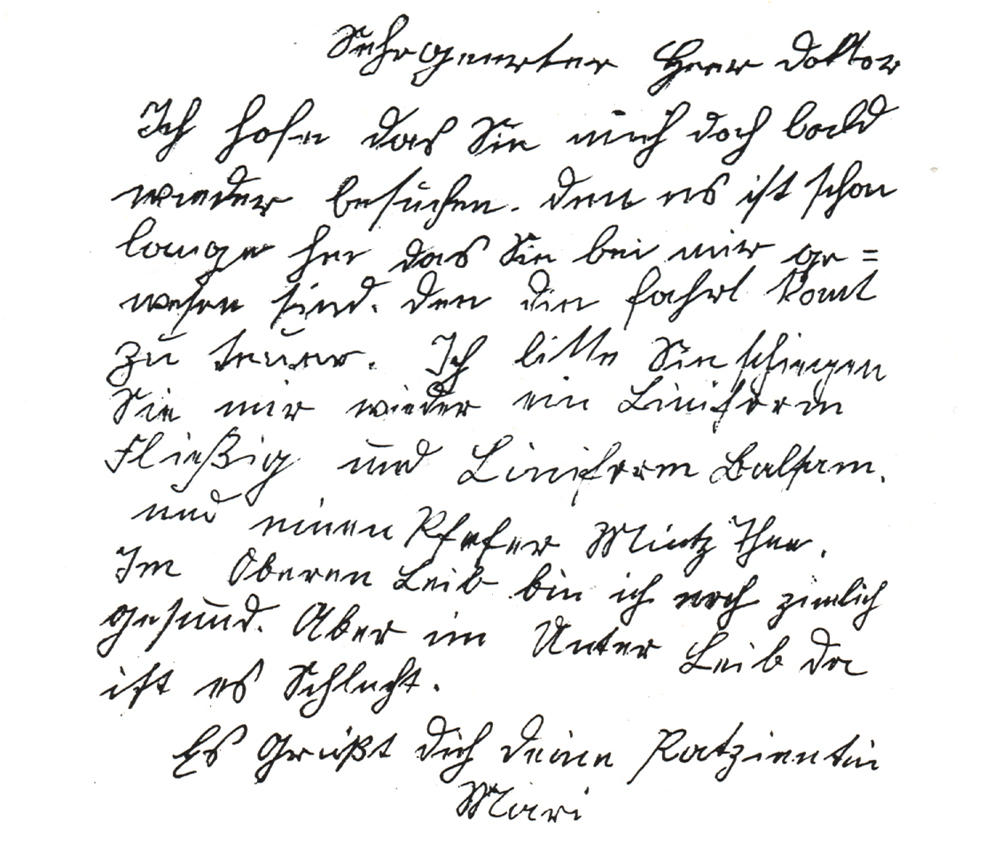 Sehrgeerter Herr Doktor
Ich hofe das Sie mich doch bald
wieder besuchen. den es ist schon
lange her das Sie bei mir ge =
wesen sind. den die fahrt komt
zu teuer. Ich bitte Sie schiegen
Sie mir wieder ein Liniform
Fließig und Liniform Balsam.
und einen Pfefer Mintz Thee.
Im Oberen Leib bin ich noch zimlich
gesund. Aber im Unter Leib da
ist es Schlecht.
Es Grüßt dich deine Patzientin
Mari